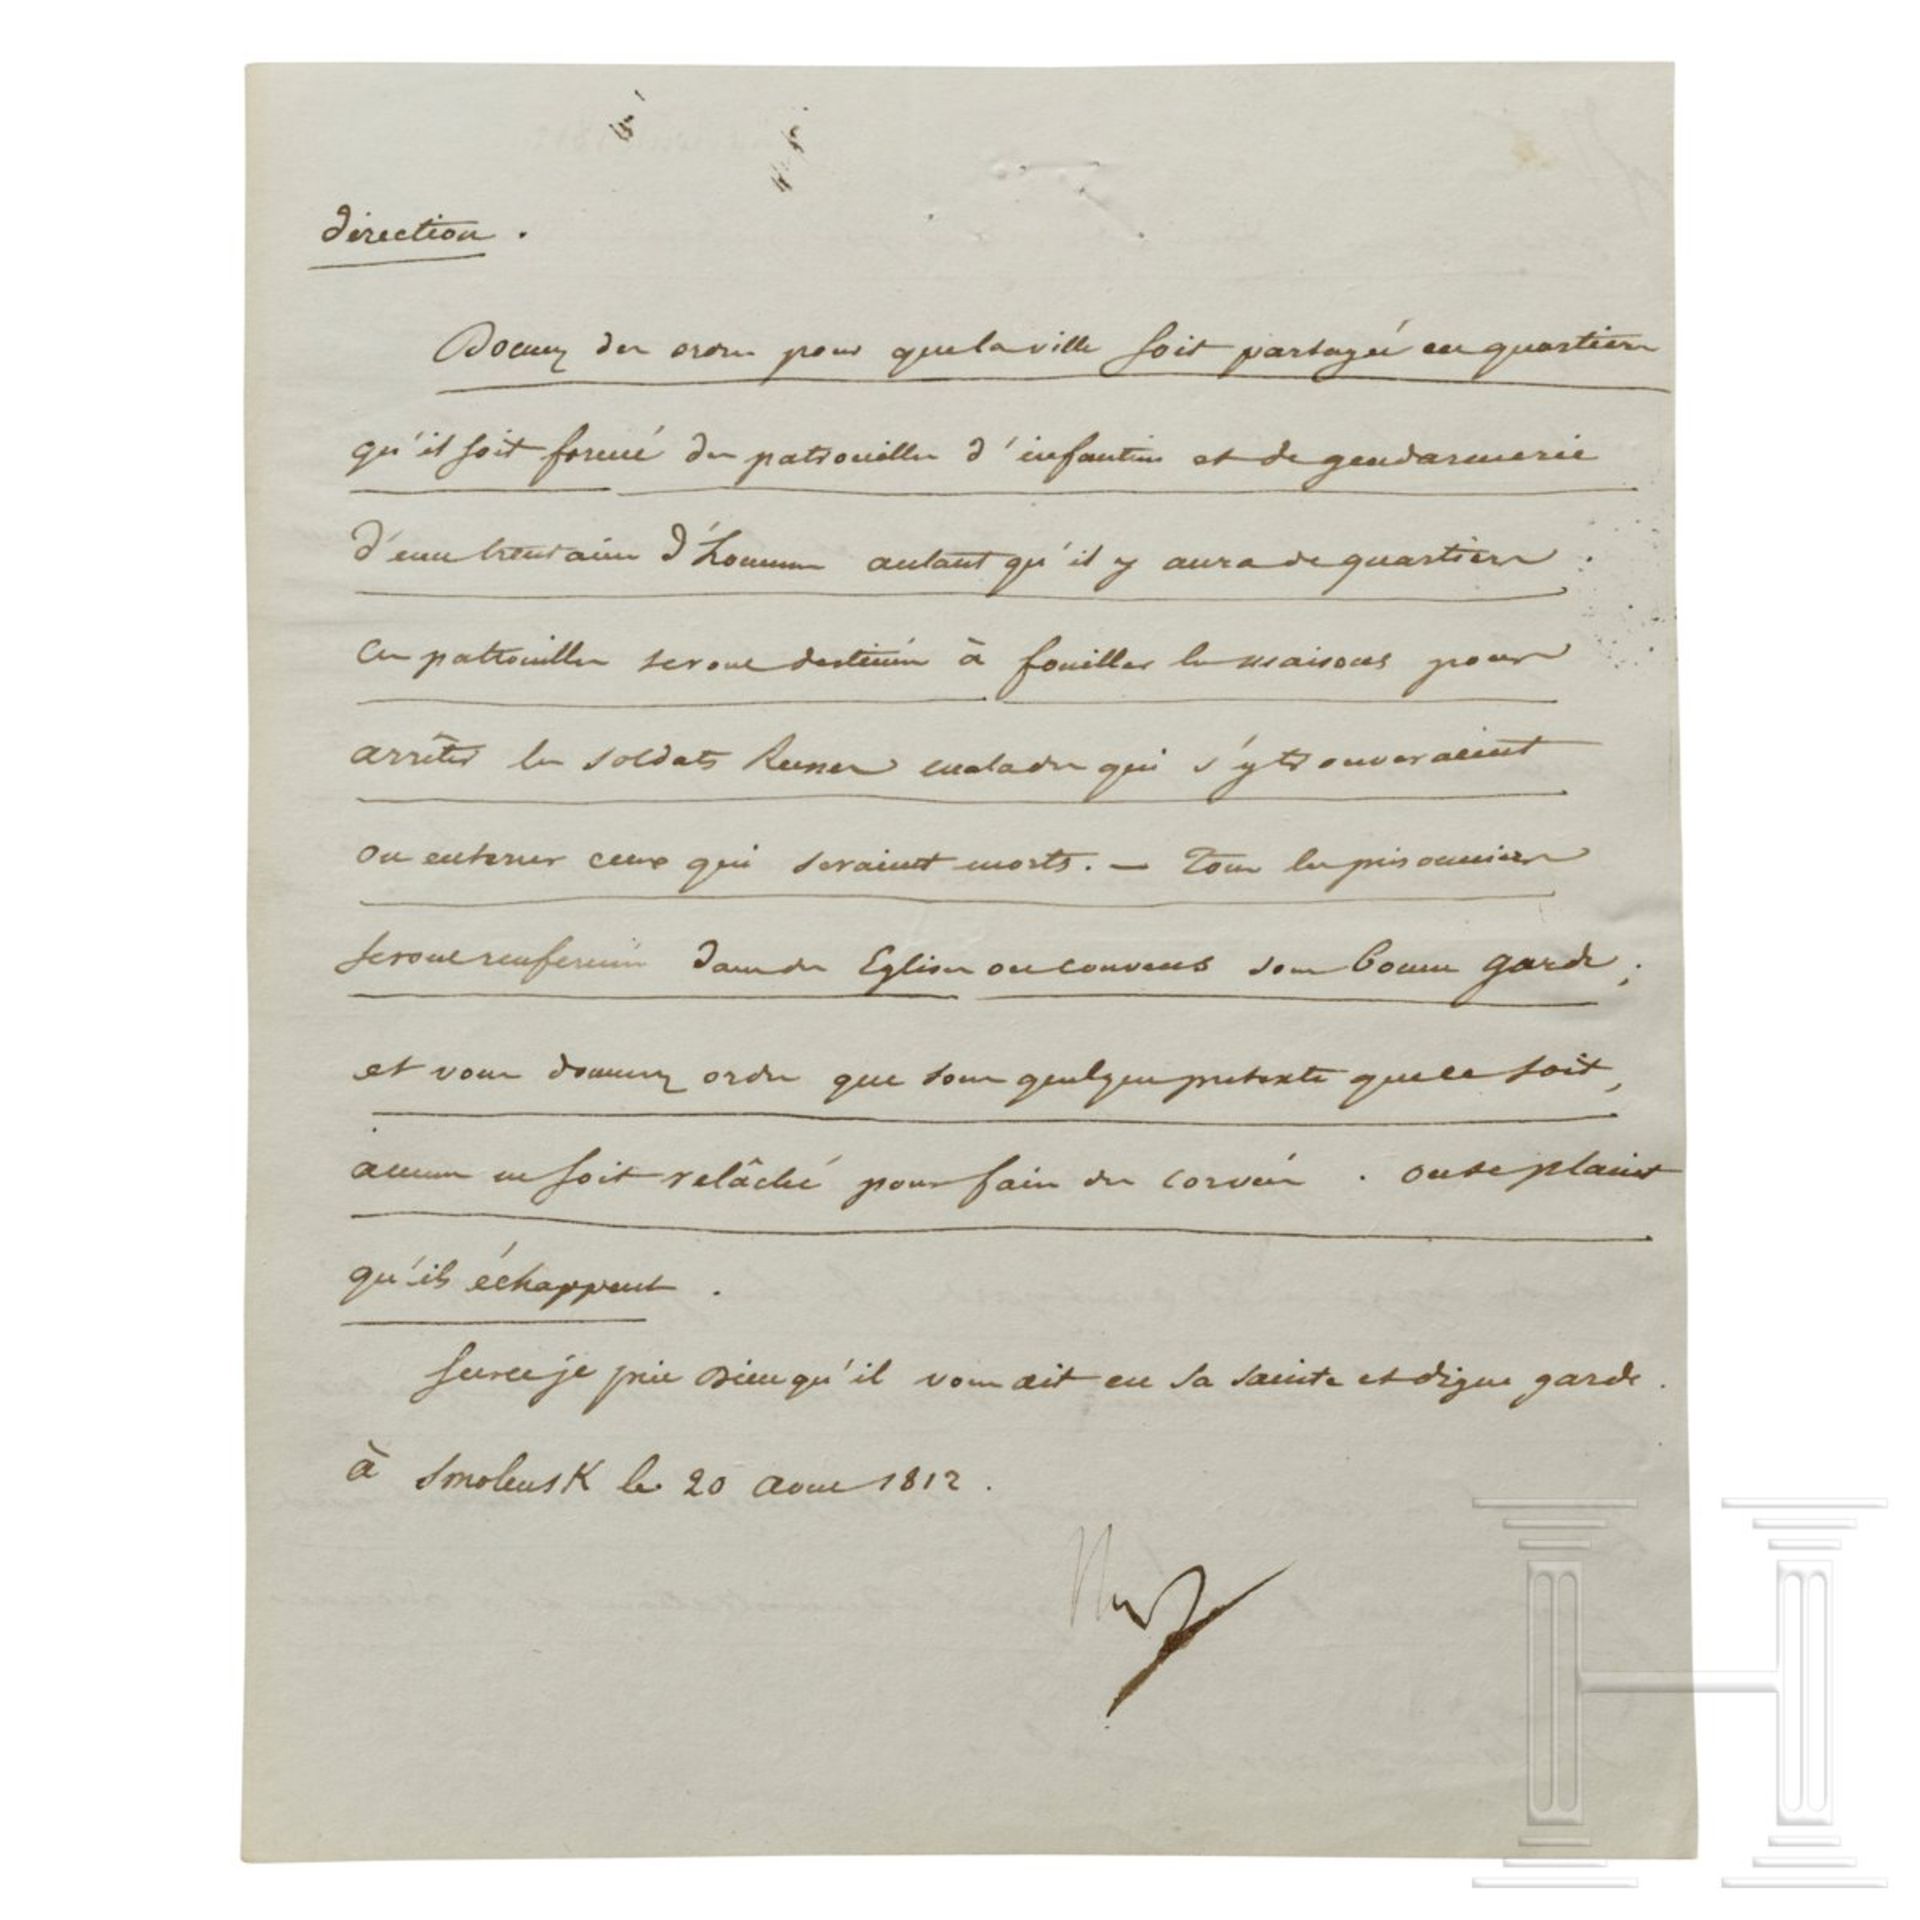 direction.
Donnez des ordres pour que la ville soit partagée en quartiers
qu'il soit formé des patrouilles d'infanterie et de gendarmerie
d'une trentaine d'hommes autant qu'il y aura de quartiers.
Ces patrouilles seront destinées à fouiller les maisons pour
arrêter les soldats Russes malades qui s'y trouveraient
ou enterrer ceux qui seraient morts. — Tous les prisonniers
seront renfermés dans des Eglises ou couvens sous bonne garde;
et vous donnerez ordre que sous quelque pretexte que ce soit,
aucun ne soit relâché pour faire des corvées. on se plaint
qu'ils échappent.
Sur ce je prie Dieu qu'il vous ait en sa sainte et digne garde.
à Smolensk le 20 Aout 1812.